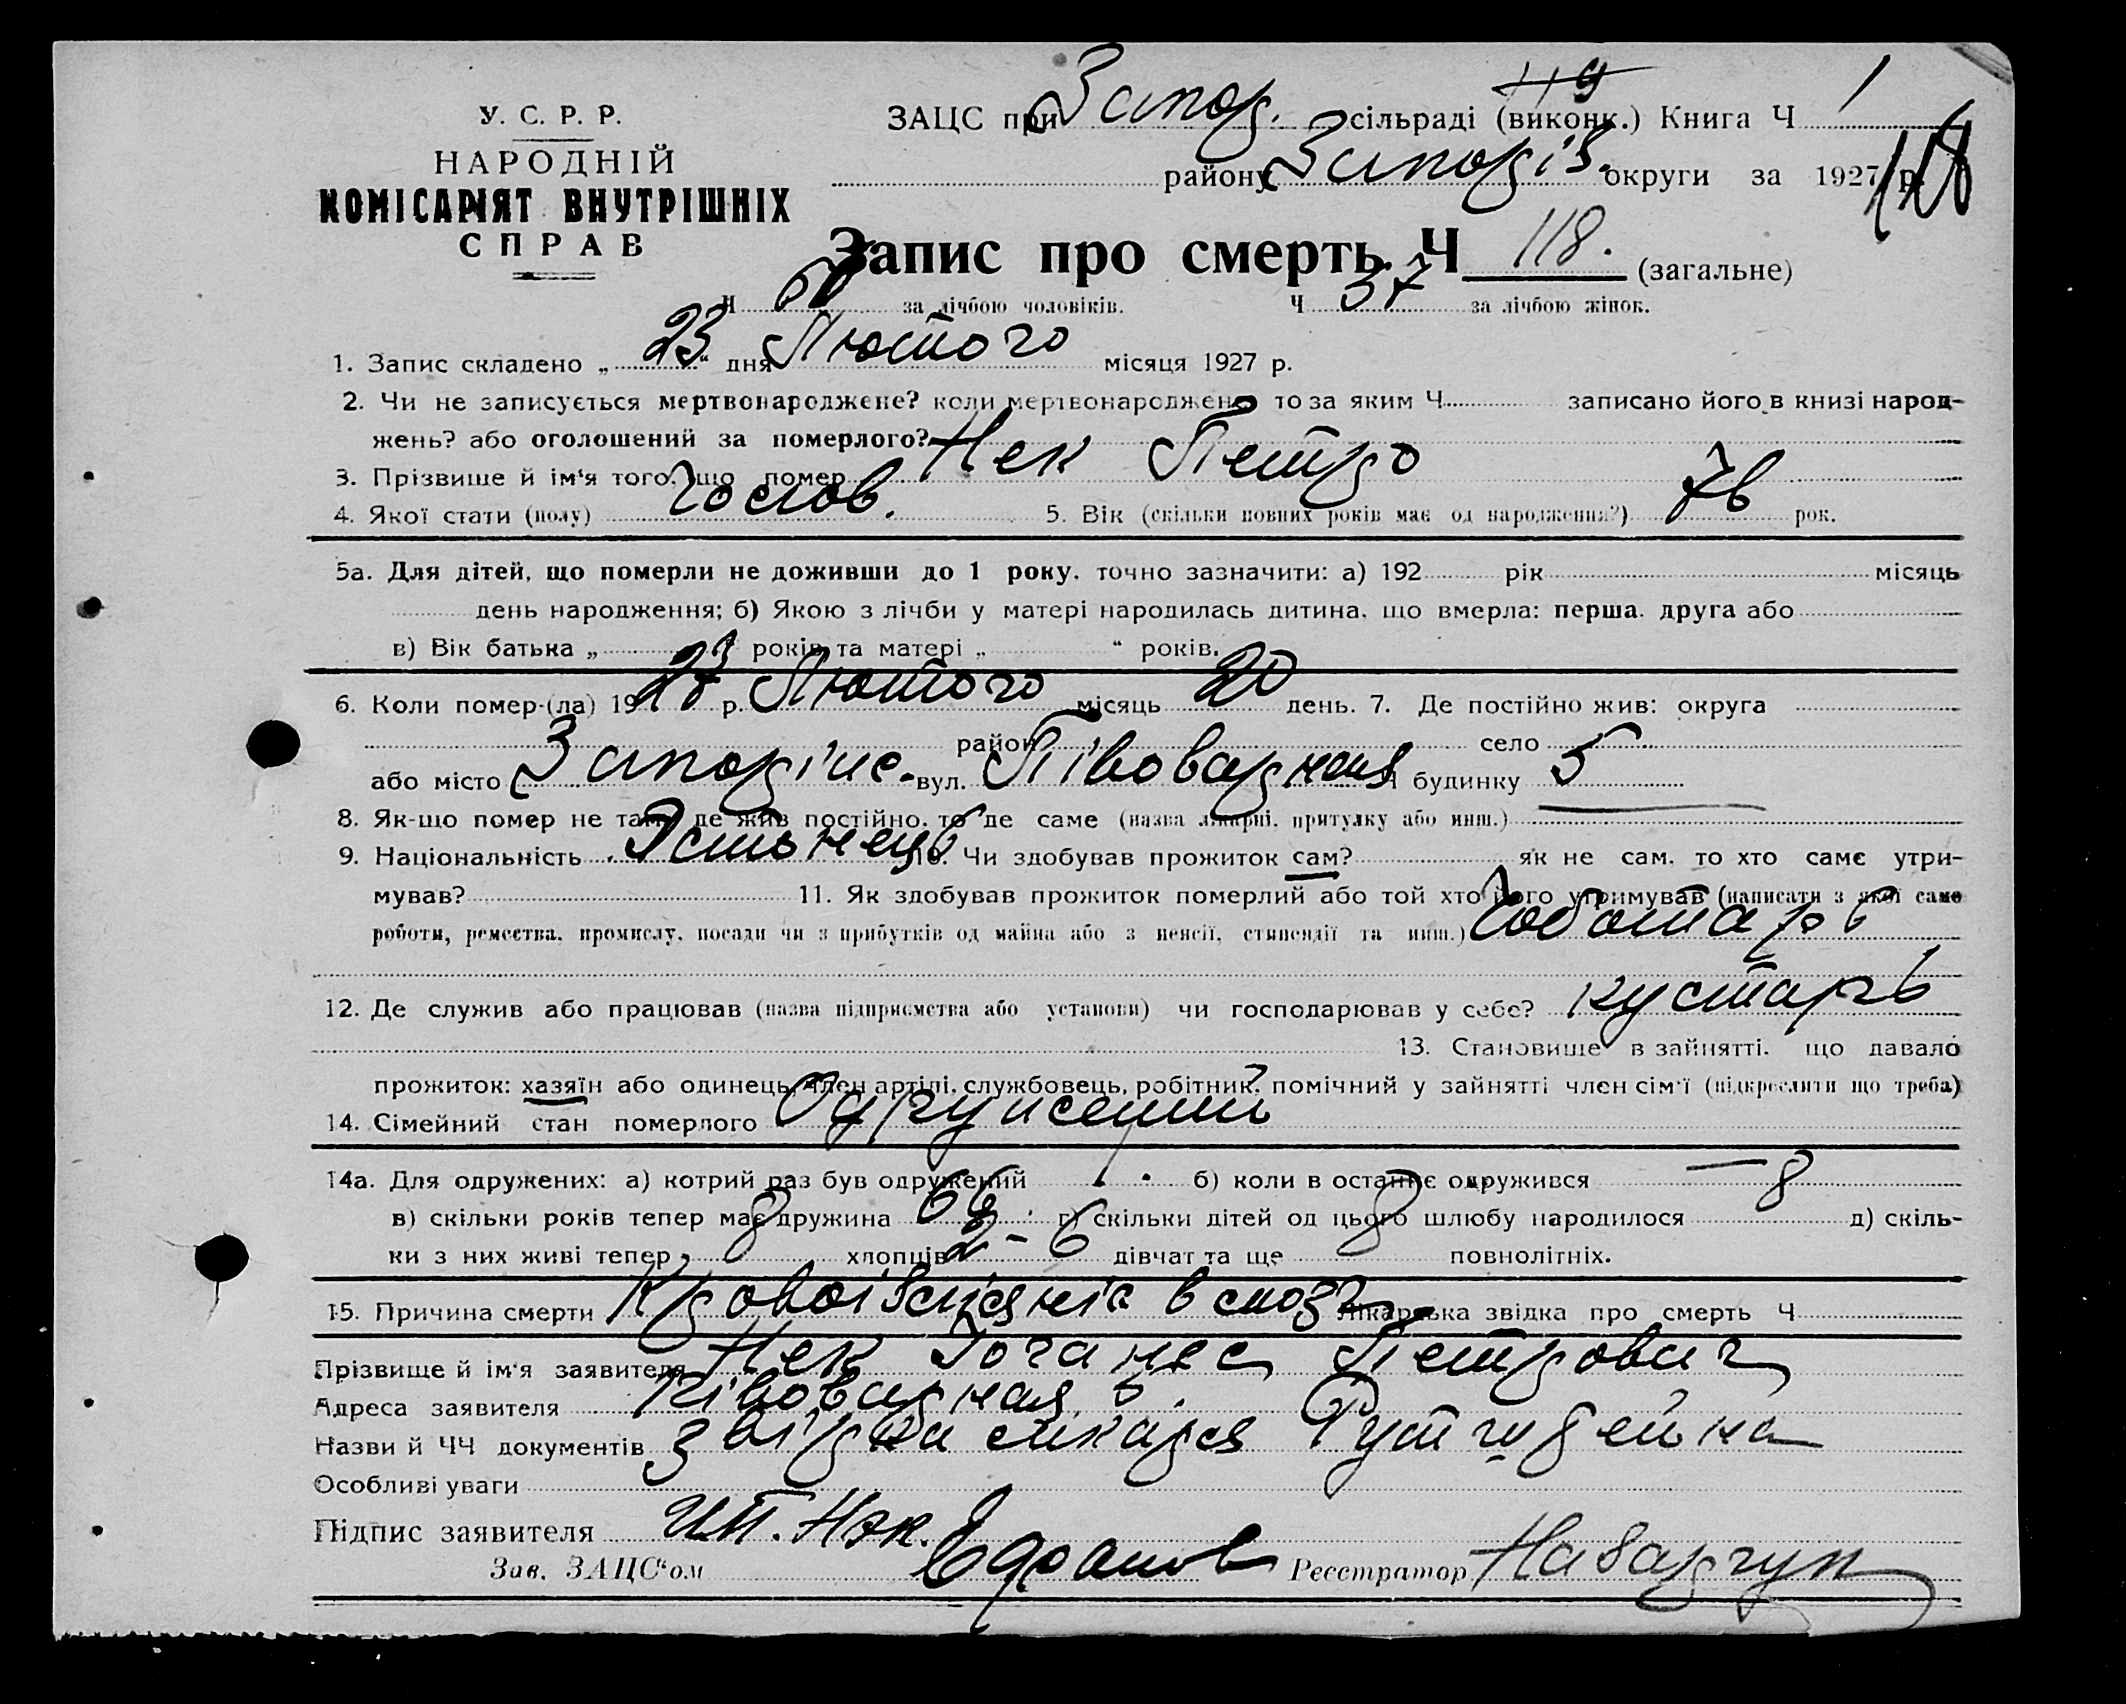 У. С. Р. Р.
НАРОДНІЙ
КОМІСАРІЯТ ВНУТРІШНІХ
СПРАВ
119
ЗАЦС при Запор. сільраді (виконк.) Книга Ч 1
району Запоріз. округи за 1927 р.
118
Запис про смерть Ч 118. (загальне)
Ч за лічбою чоловіків. Ч 37 за лічбою жінок.
1. Запис складено „ 23 “ дня Лютого місяця 1927 р.
2. Чи не записується мертвонароджене? коли мертвонароджене то за яким Ч записано його в книзі народ-
жень? або оголошений за померлого?
3. Прізвище й ім'я того, що помер Нек Петро
4. Якої стати (полу) чолов. 5. Вік (скільки повних років має од народження?) 76 рок.
5а. Для дітей, що померли не доживши до 1 року, точно зазначити: а) 192 рік місяць
день народження; б) Якою з лічби у матері народилась дитина, що вмерла: перша, друга або
в) Вік батька „ “ років та матері „ “ років.
6. Коли помер-(ла) 1927 р. Лютого місяць 20 день. 7. Де постійно жив: округа
район село
або місто Запоріже. вул. Півоварная Ч будинку 5
8. Як-що помер не там, де жив постійно, то де саме (назва лікарні, притулку або инш.)
9. Національність Эстонець 10. Чи здобував прожиток сам? як не сам, то хто саме утри-
мував? 11. Як здобував прожиток померлий або той хто його утримував (написати з якої саме
роботи, ремества, промислу, посади чи з прибутків од майна або з пенсії, стипендії та инш.) Чоботарь
12. Де служив або працював (назва підприємства або установи) чи господарював у себе? кустарь
13. Становище в зайнятті, що давало
прожиток: хазяїн або одинець, член артілі, службовець, робітник, помічний у зайнятті член сім'ї (підкреслити що треба)
14. Сімейний стан померлого Одружений
14а. Для одружених: а) котрий раз був одружений 1. б) коли в останнє одружився — 8
в) скільки років тепер має дружина г) скільки дітей од цього шлюбу народилося 8 д) скіль-
ки з них живі тепер 8 хлопців 2 - 6 дівчат та ще повнолітніх.
15. Причина смерти в мозг Лікарська звідка про смерть Ч
Прізвище й ім'я заявителя Нек Іоганес Петрович
Адреса заявителя Півоварная 5.
Назви й ЧЧ документів звірка лікаря
Особливі уваги
Підпис заявителя Нэк.
Зав. ЗАЦС'ом Реєстратор